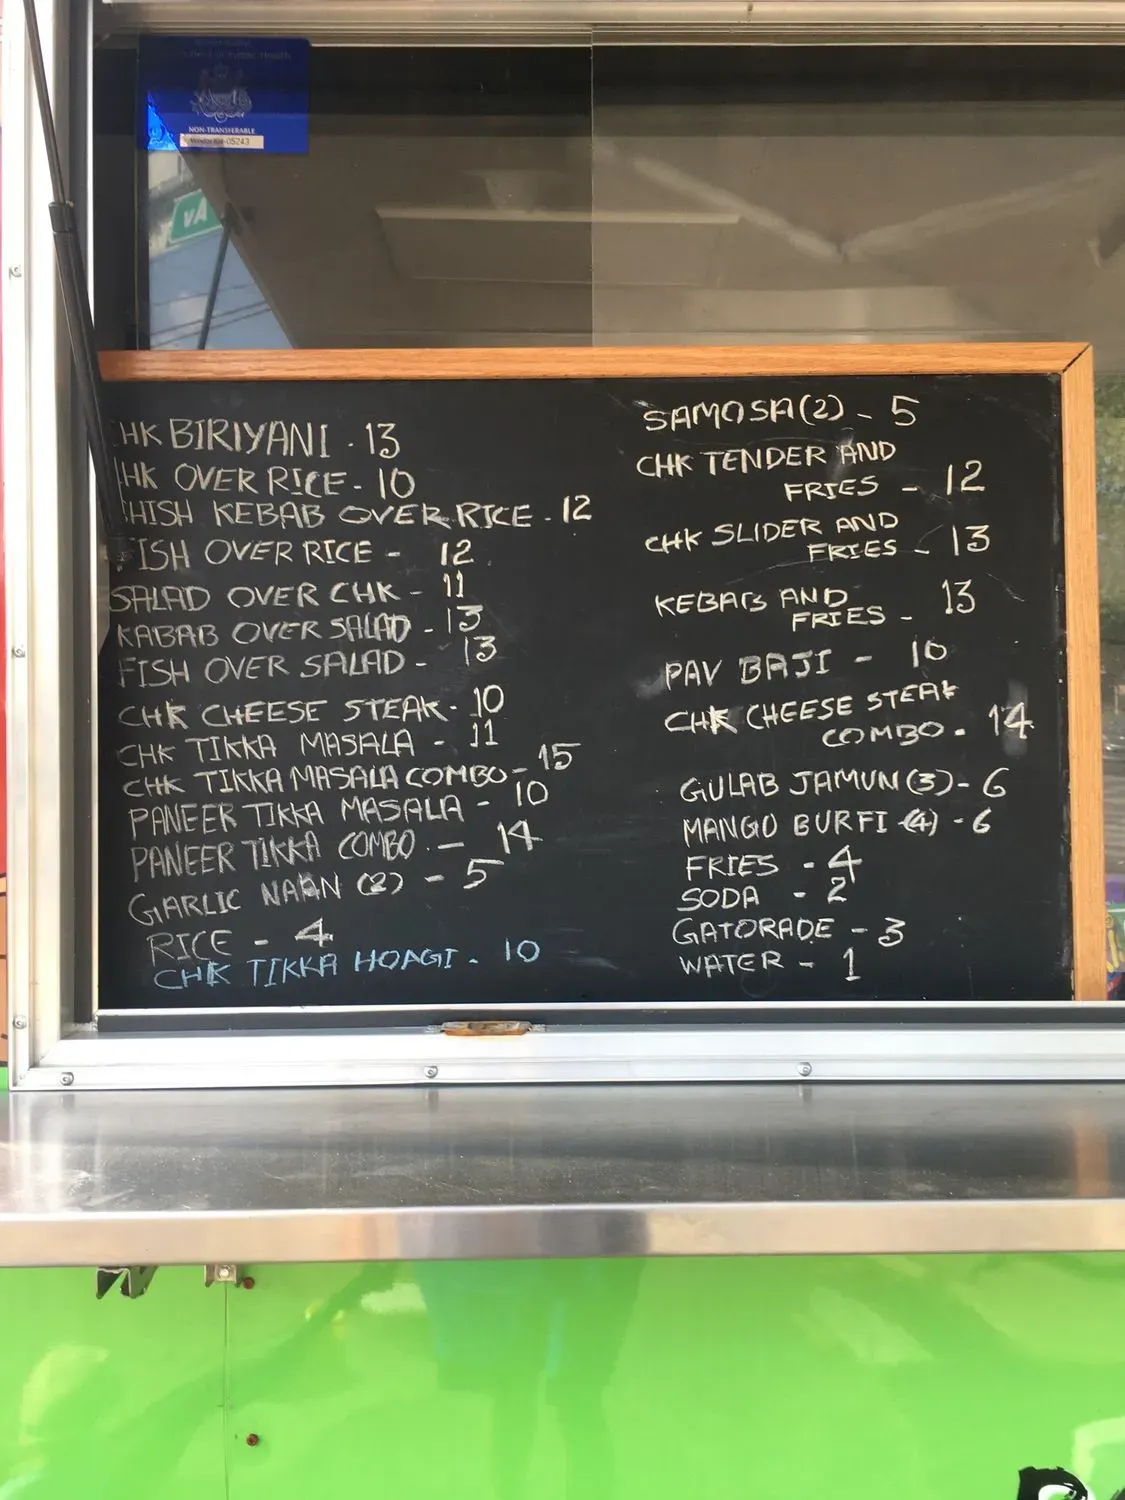 NON-TRANSFERABLE
HK BIRIYANI . 13
HK OVER RICE - 10
HISH KEBAB OVER RICE . 12
FISH OVER RICE - 12
SALAD OVER CHK - 11
KABAB OVER SALAD - 13
FISH OVER SALAD - 13
CHK CHEESE STEAK - 10
CHK TIKKA MASALA - 11
CHK TIKKA MASALA COMBO - 15
PANEER TIKKA MASALA - 10
PANEER TIKKA COMBO - 14
GARLIC NAAN (2) - 5
RICE - 4
CHK TIKKA HOAGI - 10
SAMOSA (2) - 5
CHK TENDER AND
FRIES - 12
CHK SLIDER AND
FRIES - 13
KEBAB AND
FRIES - 13
PAV BAJI - 10
CHK CHEESE STEAK
COMBO - 14
GULAB JAMUN (3) - 6
MANGO BURFI (4) - 6
FRIES - 4
SODA - 2
GATORADE - 3
WATER - 1